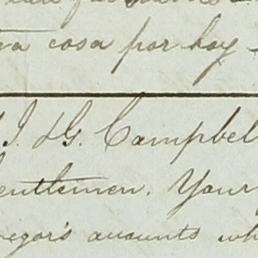 cosa por hoy
J. & G. Campbel
entlemen. Your
regor's accounts wh